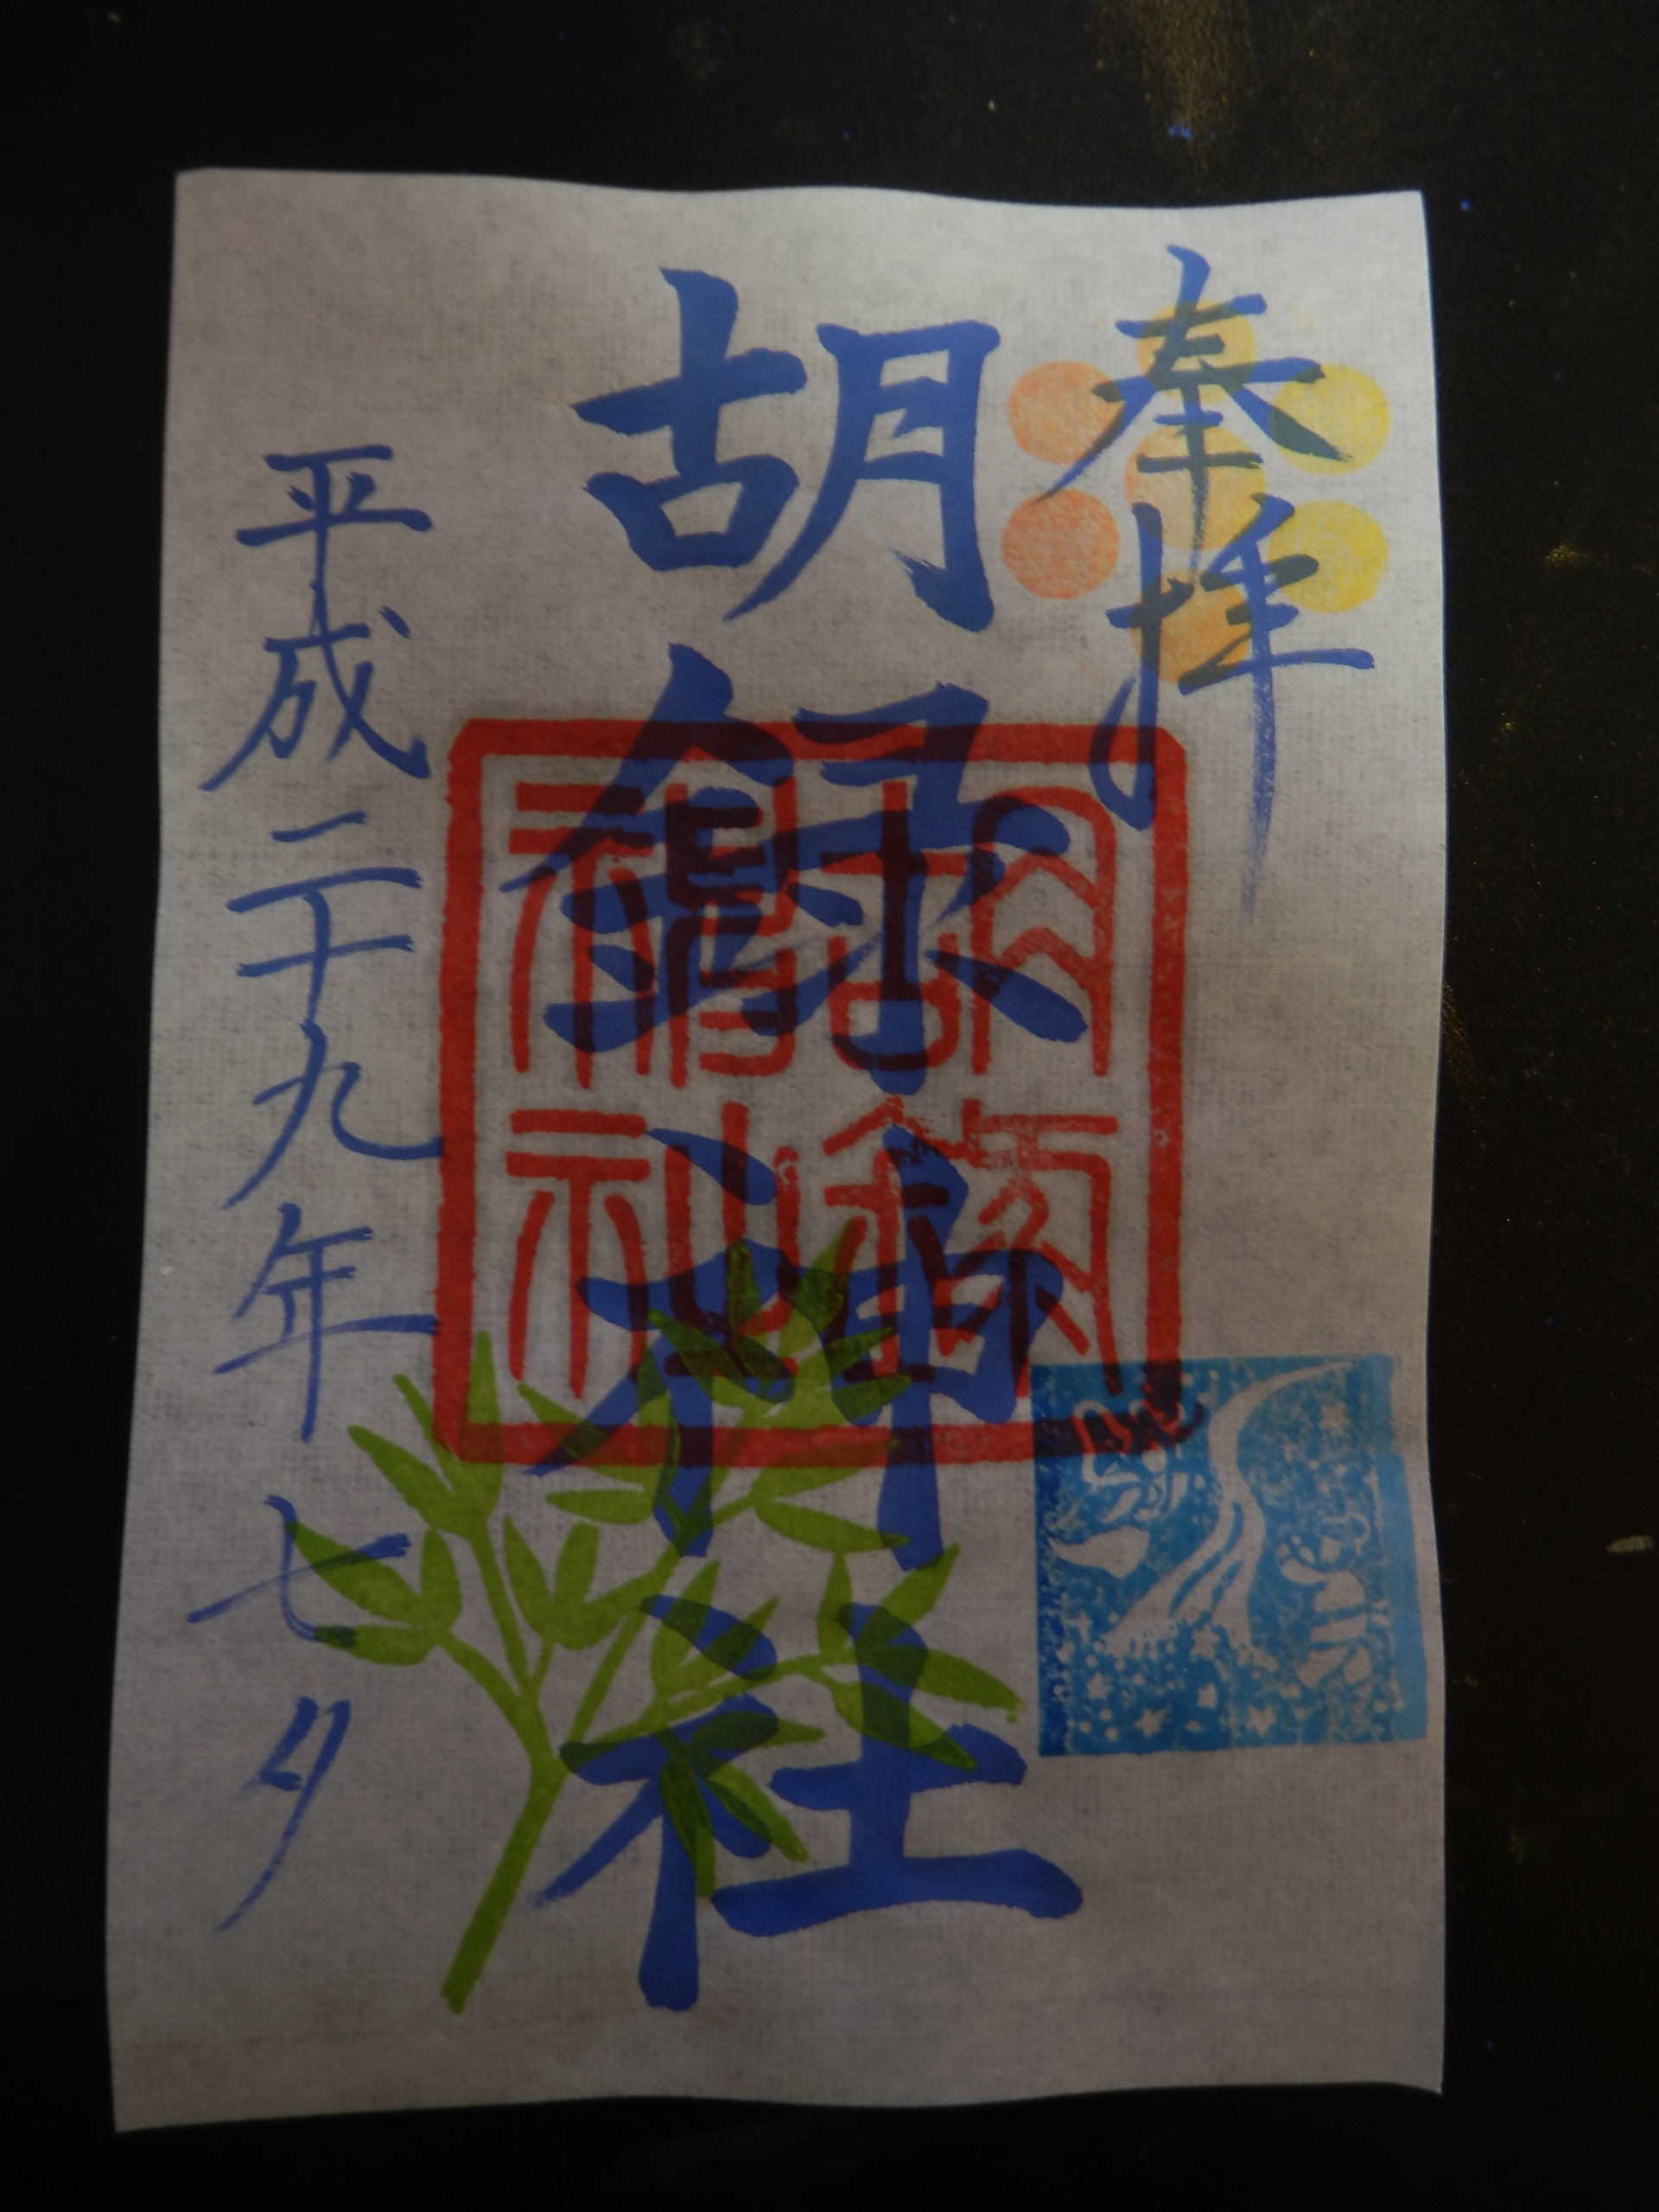 奉拝
胡録神社
胡録神社
平成二十九年七夕